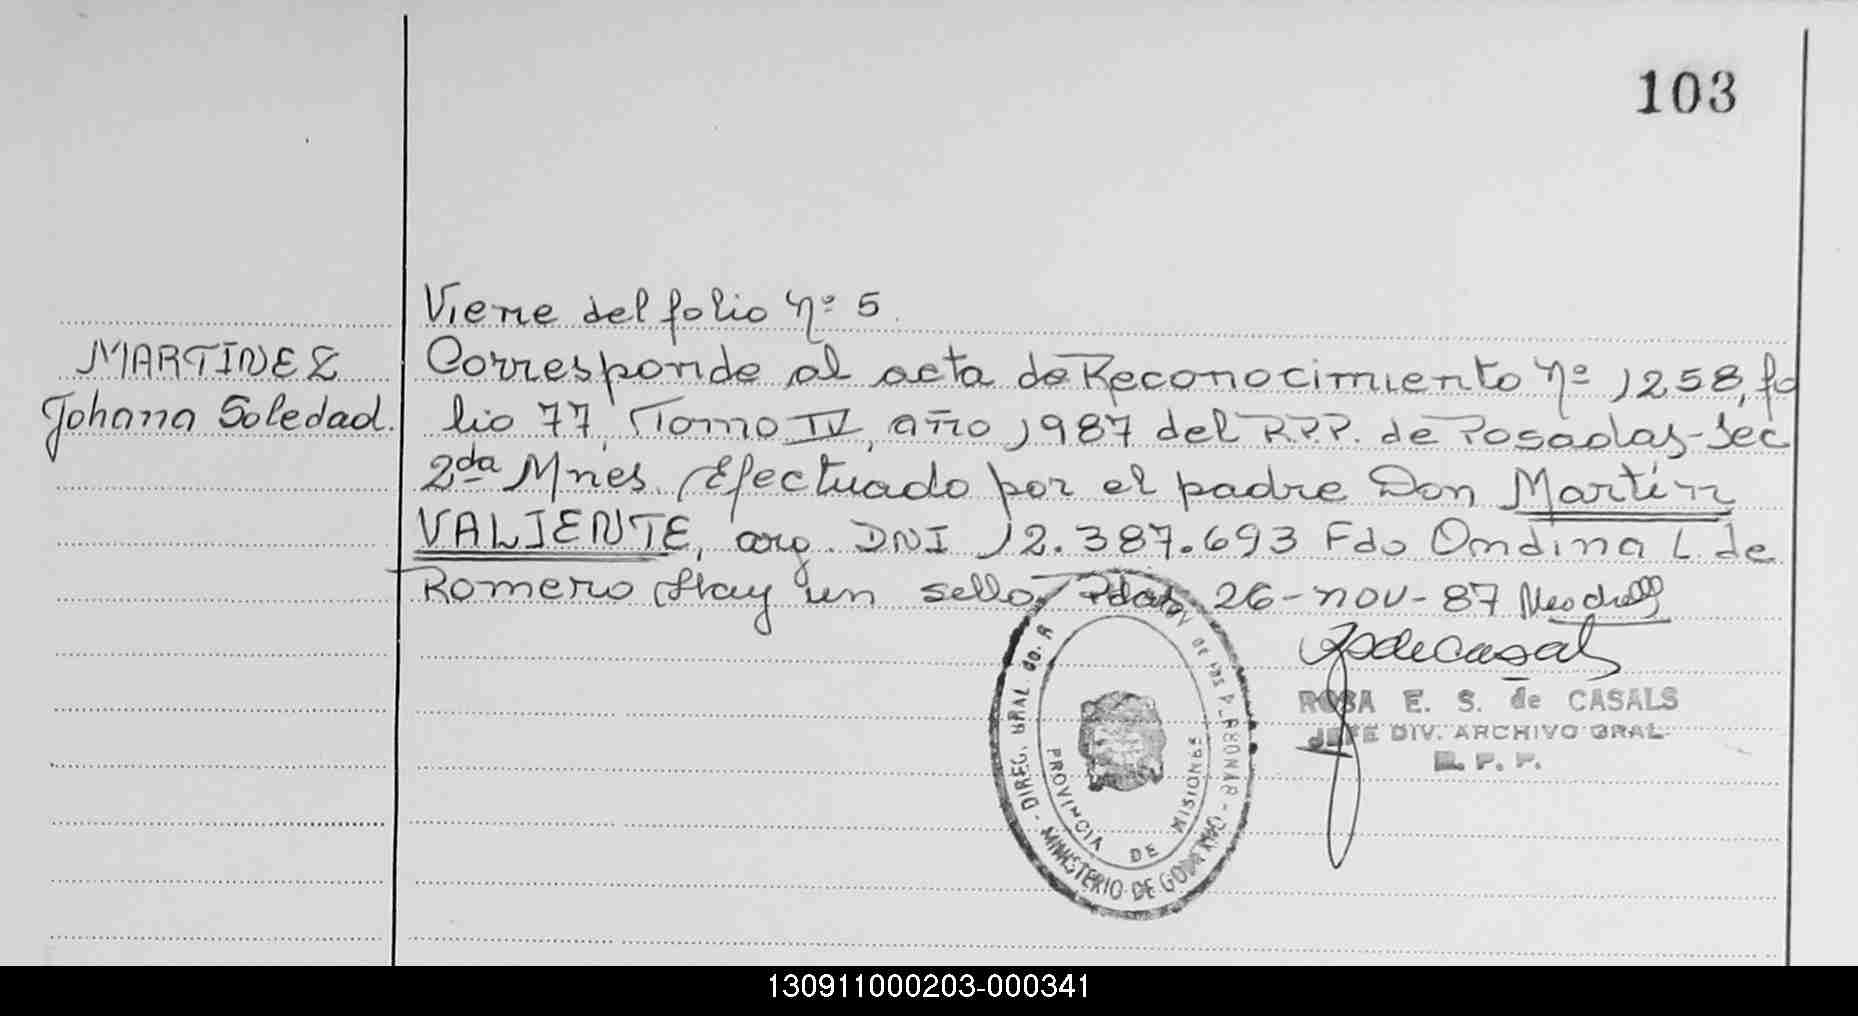 103
Viene del folio Nº 5.
MARTINEZ
Johana Soledad.
Corresponde al acta de Reconocimiento Nº 1258, fo
lio 77, Tomo IV, año 1987 del R.P.P. de Posadas-Sec
2da Mnes. Efectuado por el padre Don Martín
VALIENTE, arg. DNI 12.387.693 Fdo Ondina L. de
Romero Hay un sello Pdas, 26-nov-87
ROSA E. S. de CASALS
JEFE DIV. ARCHIVO GRAL.
R. P. P.
DIREC. GRAL. DE LAS PERSONAS - MINISTERIO DE GOBIERNO -
PROVINCIA DE MISIONES
130911000203-000341